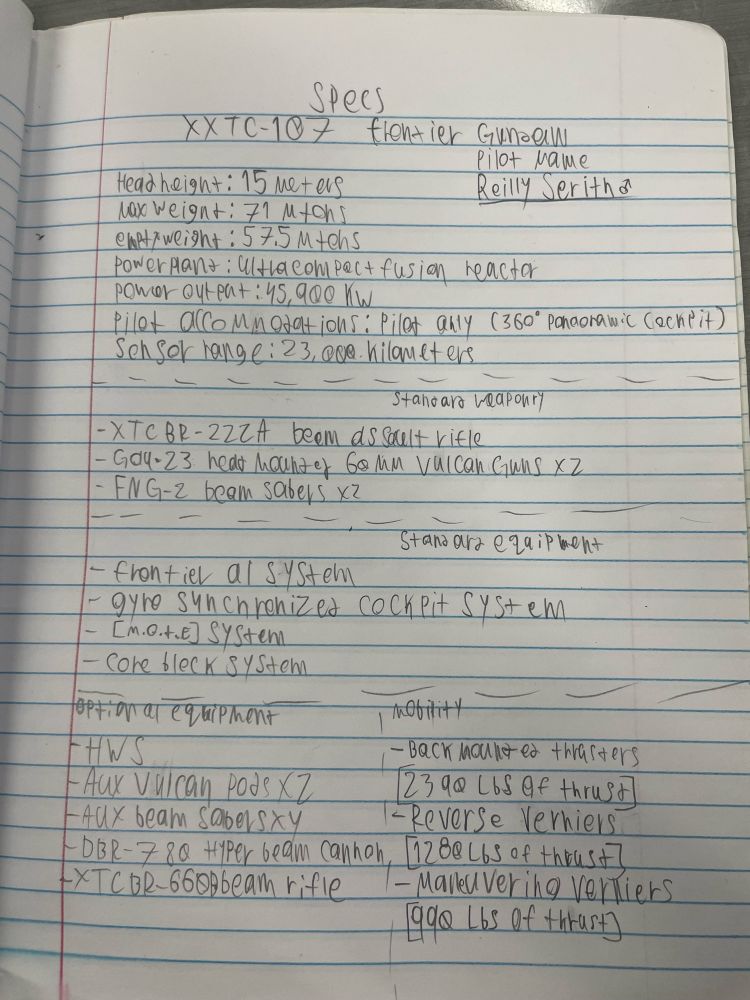 Specs
XXTC-107 frontier Gundam
Pilot Name
Reilly Serith♂
Head height: 15 Meters
Max weight: 71 Mtons
empty weight: 57.5 Mtons
Powerplant: Ultracompact fusion reactor
Power output: 45,900 KW
Pilot accommodations: Pilot only (360° panaoramic Cockpit)
Sensor range: 23,000. Kilometers
Standard weaponry
-XTCBR-222A beam assault rifle
- Gau-23 head Mounted 60MM Vulcan Guns X2
- FNG-2 beam sabers X2
Standard equipment
- frontier aI system
- gyro synchronized cockpit system
- [M.O.t.E] system
- Core block system
Optional equipment
-HWS
-Aux Vulcan pods X2
-AUX beam sabers x4
-DBR-780 Hyper beam cannon
-XTCBR-660B beam rifle
Mobility
-Back mounted thrusters
[2390 Lbs Of thrust]
-Reverse Verniers
[1280 Lbs of thrust]
-Maneuvering verniers
[990 Lbs Of thrust]